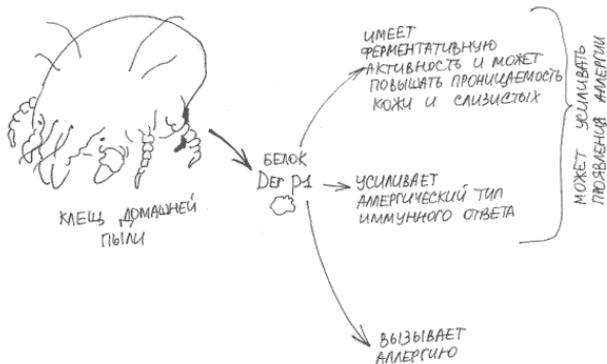 КЛЕЩ ДОМАШНЕЙ
ПЫЛИ
БЕЛОК
Der p1
ИМЕЕТ
ФЕРМЕНТАТИВНУЮ
АКТИВНОСТЬ И МОЖЕТ
ПОВЫШАТЬ ПРОНИЦАЕМОСТЬ
КОЖИ И СЛИЗИСТЫХ
УСИЛИВАЕТ
АЛЛЕРГИЧЕСКИЙ ТИП
ИММУННОГО ОТВЕТА
МОЖЕТ УСИЛИВАТЬ
ПРОЯВЛЕНИЯ АЛЛЕРГИИ
ВЫЗЫВАЕТ
АЛЛЕРГИЮ